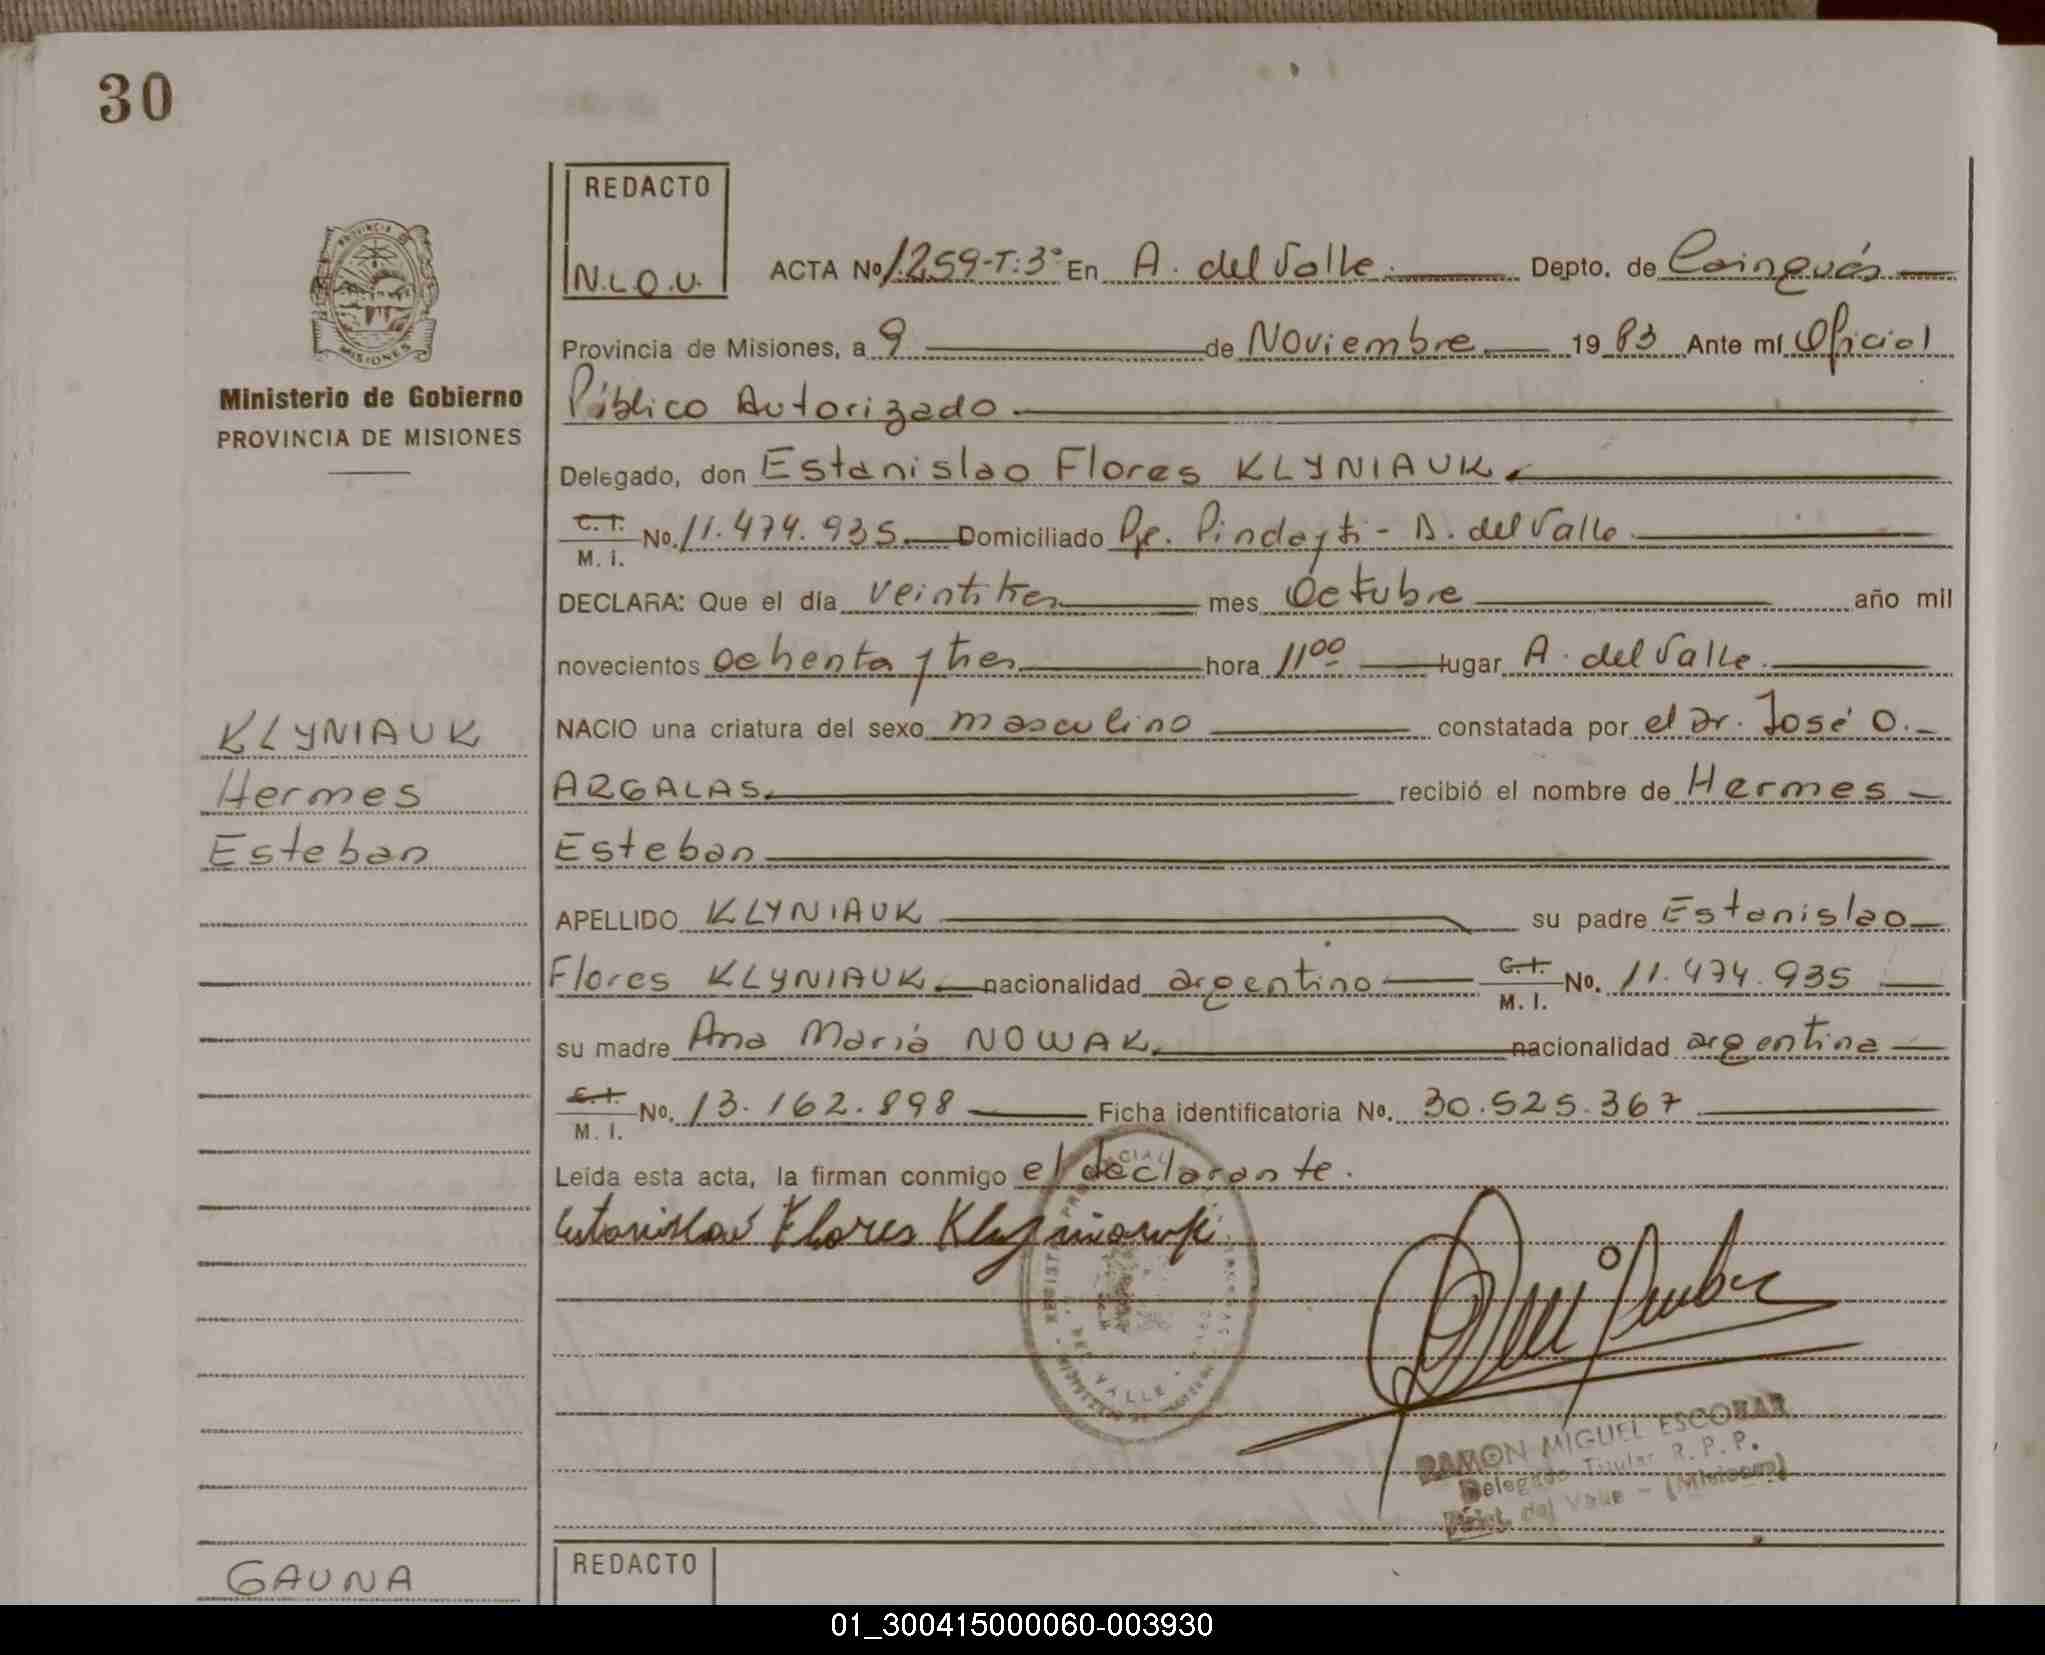 30
REDACTO
N.L.O.U.
ACTA No 1.259-T:3° En A. del Valle Depto. de Cainguás
Provincia de Misiones, a 9 de Noviembre 1983 Ante mí Oficial
Público Autorizado
Delegado, don Estanislao Flores KLYNIAUK
C.I. M.I. No. 11.474.935 Domiciliado Pje. Pindayti - A. del Valle
DECLARA: Que el día veintitres mes Octubre año mil
novecientos ochenta y tres hora 11 00 lugar A. del Valle
NACIO una criatura del sexo masculino constatada por el Dr. José O.
ARGALAS recibió el nombre de Hermes
Esteban
APELLIDO KLYNIAUK su padre Estanislao
Flores KLYNIAUK nacionalidad argentino C.I. M.I. No. 11.474.935
su madre Ana María NOWAK nacionalidad argentina
C.I. M.I. No. 13.162.898 Ficha identificatoria No. 30.525.367
Leída esta acta, la firman conmigo el declarante.
Estanislao Flores Klyniauk
RAMON MIGUEL ESCOBAR
Delegado Titular R. P. P.
del Valle - (Misiones)
PROVINCIA MISIONES
Ministerio de Gobierno
PROVINCIA DE MISIONES
KLYNIAUK
Hermes
Esteban
GAUNA
REDACTO
01_300415000060-003930